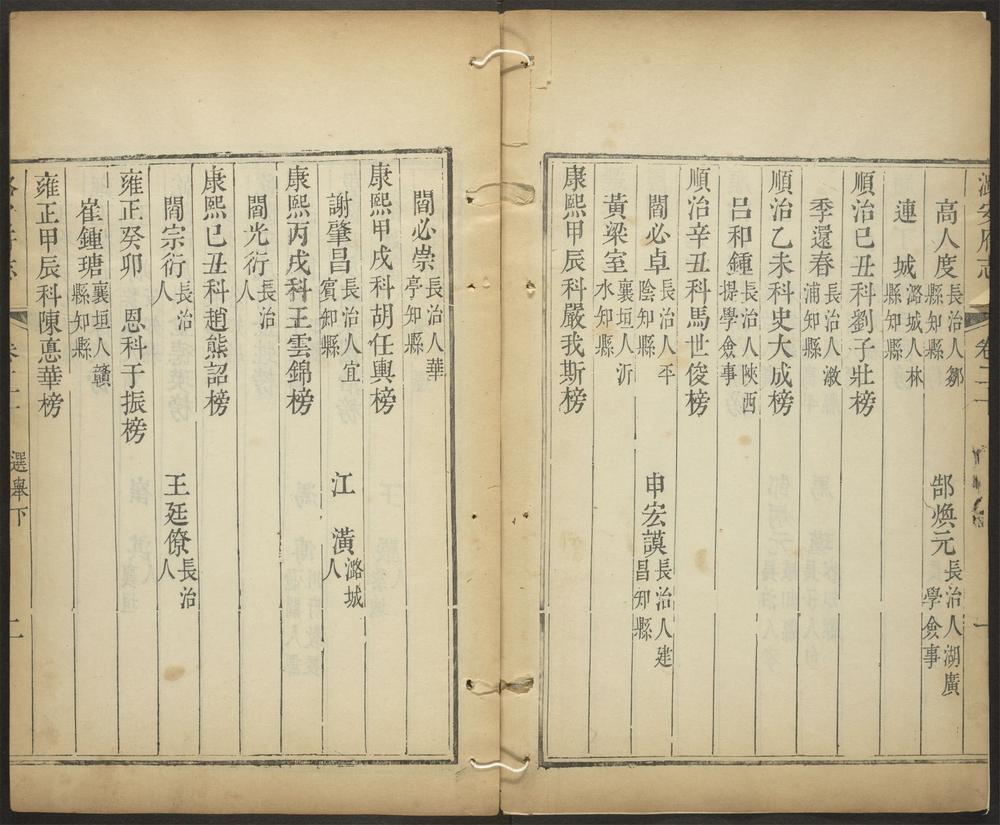 潞安府志 卷二十
高人度 長治人鄒縣知縣 郜煥元 長治人湖廣學僉事
連城 潞城人林縣知縣
順治己丑科劉子壯榜
季還春 長治人漵浦知縣
順治乙未科史大成榜
呂和鍾 長治人陝西提學僉事
順治辛丑科馬世俊榜
閻必卓 長治人平陰知縣 申宏謨 長治人建昌知縣
黃梁室 襄垣人沂水知縣
康熙甲辰科嚴我斯榜
閻必崇 長治人華亭知縣
康熙甲戌科胡任輿榜
謝肇昌 長治人宜賓知縣 江潢 潞城人
康熙丙戌科王雲錦榜
閻光衍 長治人
康熙己丑科趙熊詔榜
閻宗衍 長治人 王廷僚 長治人
雍正癸卯 恩科于振榜
崔鍾瑭 襄垣人贛縣知縣
雍正甲辰科陳惪華榜
選舉下 二